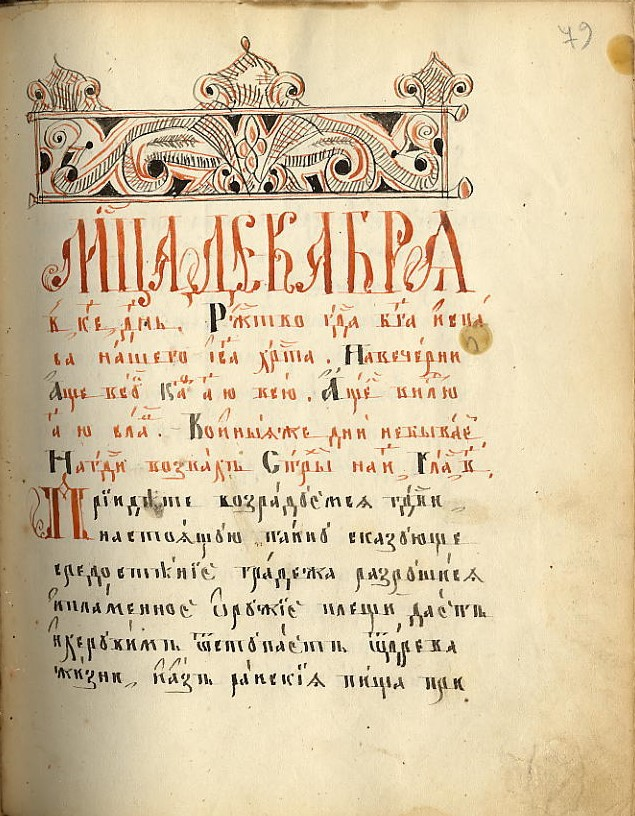 79
Мц҃а декабря
в҃ к҃е дн҃ь. Рж҃тво гд҃а бг҃а и спа
са нашего іс҃а хр҃та. На вечерни
Аще
Аще
а҃ ю Во иныя же дни не бывае
На гд҃и возвахъ Стры на и҃ гла в҃
Приидѣте возрадуемся гдви
настоящюю таину сказующе
средостѣние градежа разрушися
и пламенное ѻружие плещи даетъ
и херувимъ ѿступаетъ ѿ древа
жизни, и азъ раиския пища при